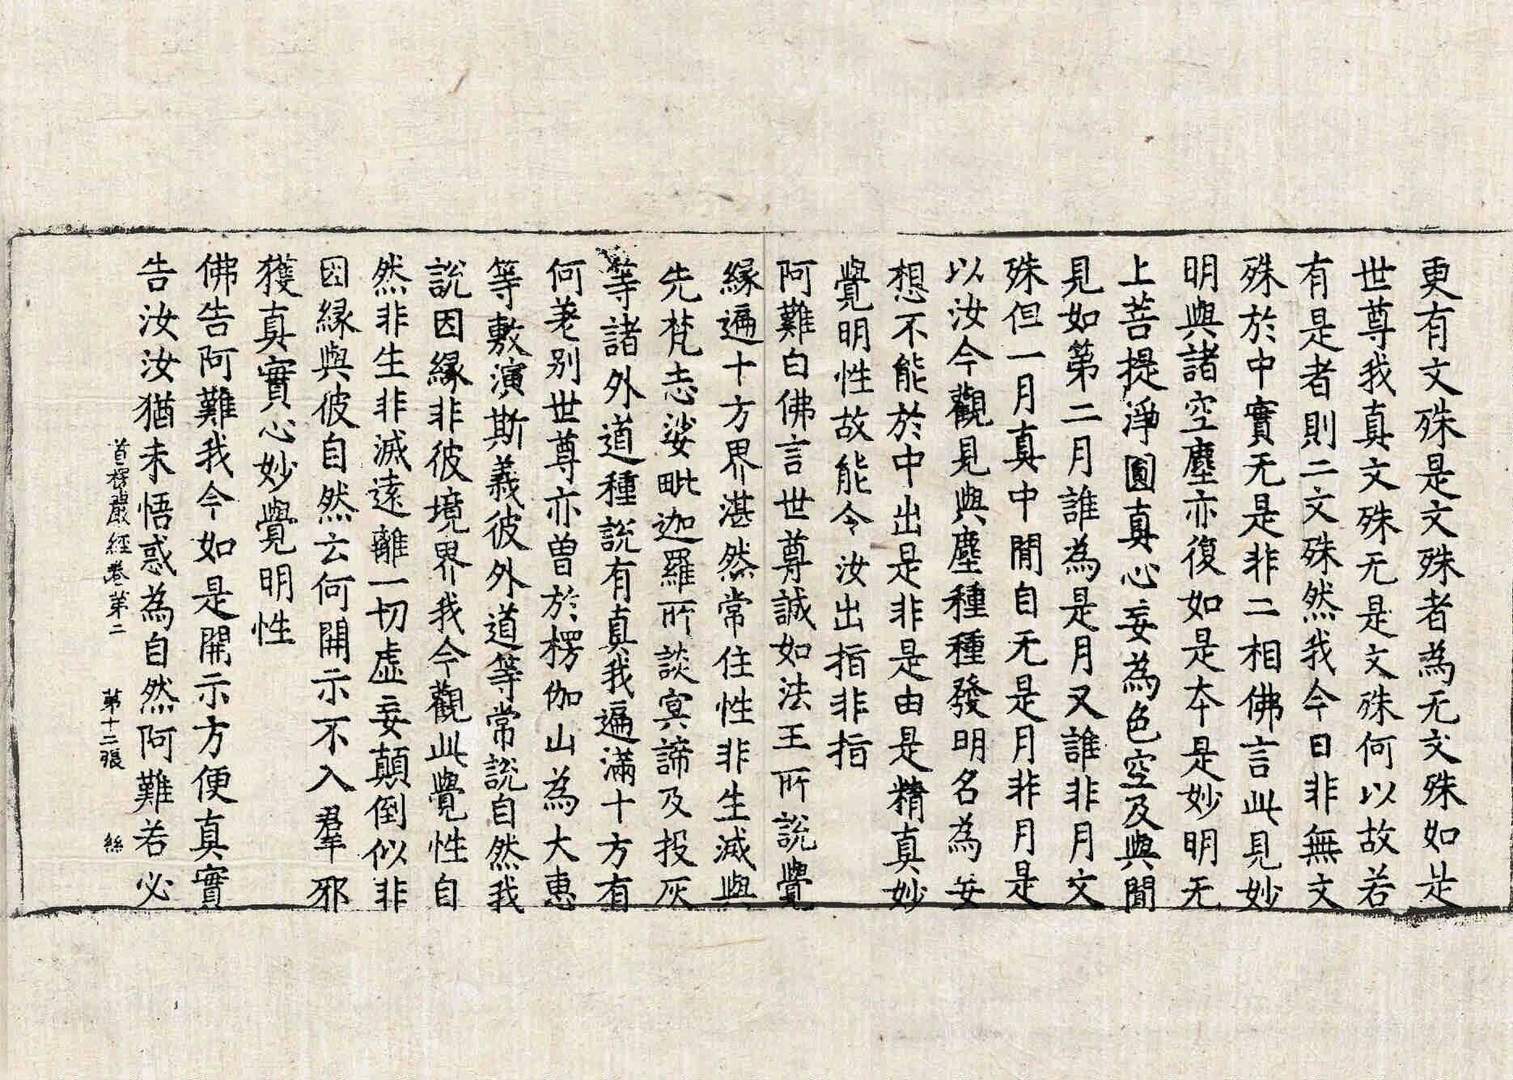 更有文殊是文殊者為无文殊如是
世尊我真文殊无是文殊何以故若
有是者則二文殊然我今日非無文
殊於中實无是非二相佛言此見妙
明與諸空塵亦復如是本是妙明无
上菩提淨圓真心妄為色空及與聞
見如第二月誰為是月又誰非月文
殊但一月真中間自无是月非月是
以汝今觀見與塵種種發明名為妄
想不能於中出是非是由是精真妙
覺明性故能令汝出指非指
阿難白佛言世尊誠如法王所說覺
緣遍十方界湛然常住性非生滅與
先梵志娑毗迦羅所談冥諦及投灰
等諸外道種說有真我遍滿十方有
何差別世尊亦曾於楞伽山為大惠
等敷演斯義彼外道等常說自然我
說因緣非彼境界我今觀此覺性自
然非生非滅遠離一切虛妄顛倒似非
因緣與彼自然云何開示不入羣邪
獲真實心妙覺明性
佛告阿難我今如是開示方便真實
告汝汝猶未悟惑為自然阿難若必
首楞嚴經卷第二 第十二張 絲